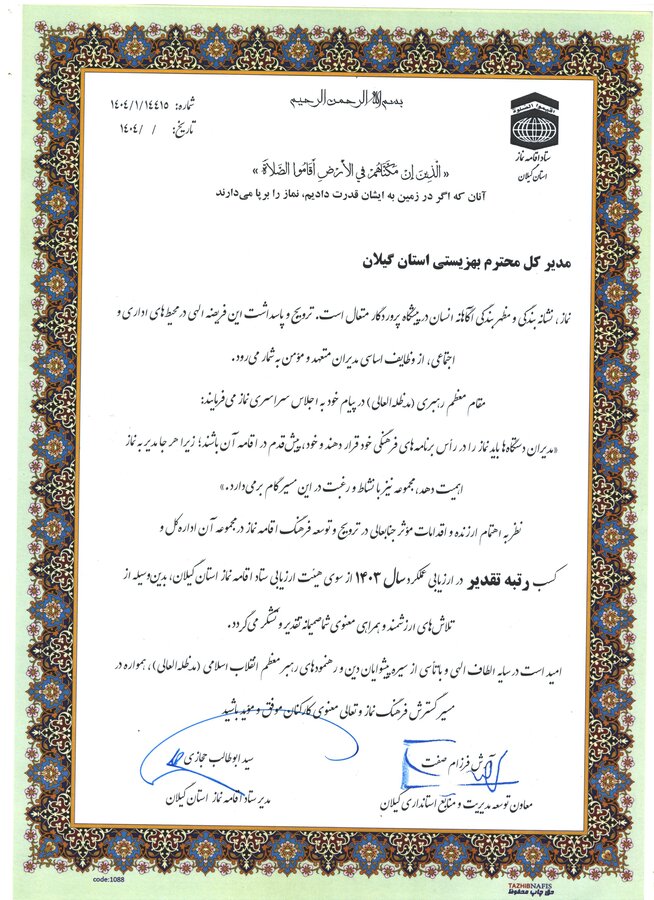 بسم الله الرحمن الرحیم
شماره: ۱۴۰۴/۱/۱۴۴۱۵
تاریخ: / /۱۴۰۴
اقیموا الصلوة
ستاد اقامه نماز
استان گیلان
« الَّذِینَ إِنْ مَکَّنَّاهُمْ فِي الأَرْضِ أَقَامُوا الصَّلَاةَ »
آنان که اگر در زمین به ایشان قدرت دادیم، نماز را برپا می‌دارند
مدیر کل محترم بهزیستی استان گیلان
نماز، نشانه بندگی و مظهر بندگی آگاهانه انسان در پیشگاه پروردگار متعال است. ترویج و پاسداشت این فریضه الهی در محیط‌های اداری و
اجتماعی، از وظایف اساسی مدیران متعهد و مؤمن به شمار می‌رود.
مقام معظم رهبری (مدظله العالی) در پیام خود به اجلاس سراسری نماز می‌فرمایند:
«مدیران دستگاه‌ها باید نماز را در رأس برنامه‌های فرهنگی خود قرار دهند و خود، پیش‌قدم در اقامه آن باشند؛ زیرا هر جا مدیر به نماز
اهمیت دهد، مجموعه نیز با نشاط و رغبت در این مسیر گام برمی‌دارد.»
نظر به اهتمام ارزنده و اقدامات مؤثر جنابعالی در ترویج و توسعه فرهنگ اقامه نماز در مجموعه آن اداره کل و
کسب رتبه تقدیر در ارزیابی عملکرد سال ۱۴۰۳ از سوی هیئت ارزیابی ستاد اقامه نماز استان گیلان، بدین‌وسیله از
تلاش‌های ارزشمند و همراهی معنوی شما صمیمانه تقدیر و تشکر می‌گردد.
امید است در سایه الطاف الهی و با تأسی از سیره پیشوایان دین و رهنمودهای رهبر معظم انقلاب اسلامی (مدظله العالی)، همواره در
مسیر گسترش فرهنگ نماز و تعالی معنوی کارکنان موفق و مؤید باشید
آرش فرزام صفت
معاون توسعه مدیریت و منابع استانداری گیلان
سید ابوطالب حجازی
مدیر ستاد اقامه نماز استان گیلان
code:1088
TAZHIBNAFIS
حق چاپ محفوظ